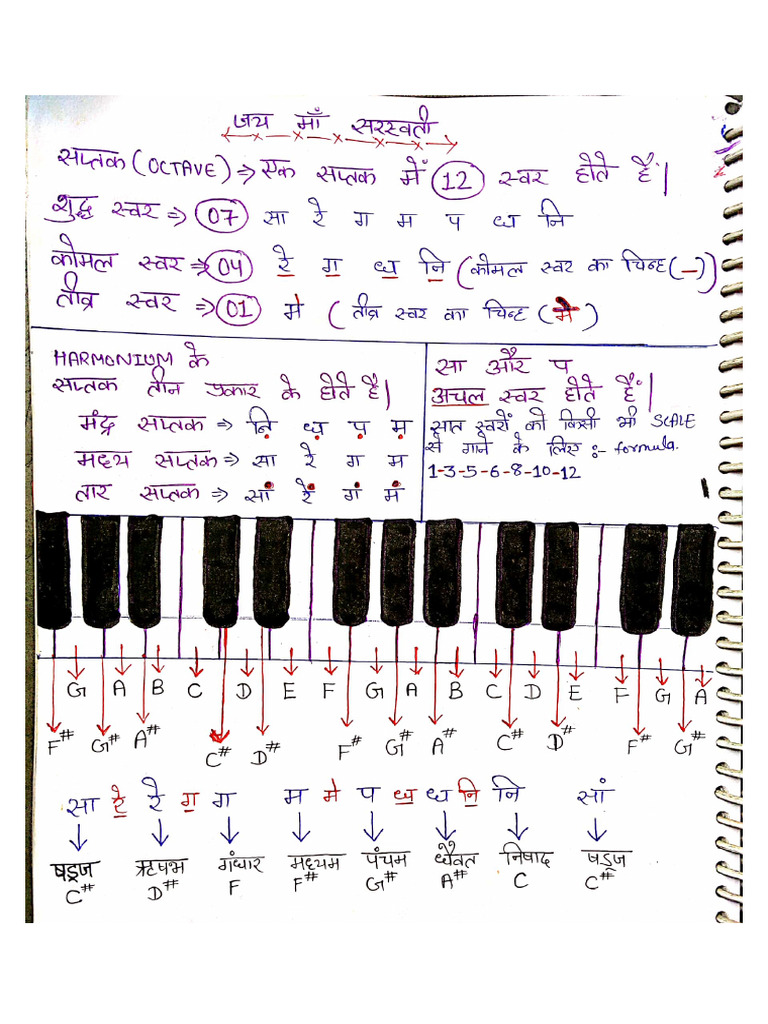 जय माँ सरस्वती
सप्तक (OCTAVE) ⇒ एक सप्तक में 12 स्वर होते हैं|
शुद्ध स्वर ⇒ 07 सा रे ग म प ध नि
कोमल स्वर ⇒ 04 रे ग ध नि (कोमल स्वर का चिन्ह (_))
तीव्र स्वर ⇒ 01 मे (तीव्र स्वर का चिन्ह (मे)
HARMONIUM के
सप्तक तीन प्रकार के होते हैं|
मंद्र सप्तक ⇒ नि़ ध़ प़ म़
मध्य सप्तक ⇒ सा रे ग म
तार सप्तक ⇒ सां रें गं मं
सा और प
अचल स्वर होते हैं|
सात स्वरों को किसी भी SCALE
से गाने के लिए :- formula.
1-3-5-6-8-10-12
G A B C D E F G A B C D E F G A
F# G# A# C# D# F# G# A# C# D# F# G#
सा रे रे ग ग म मे प ध ध नि नि सां
षड्रज ऋषभ गंधार मध्यम पंचम धैवत निषाद षड्रज
C# D# F F# G# A# C C#